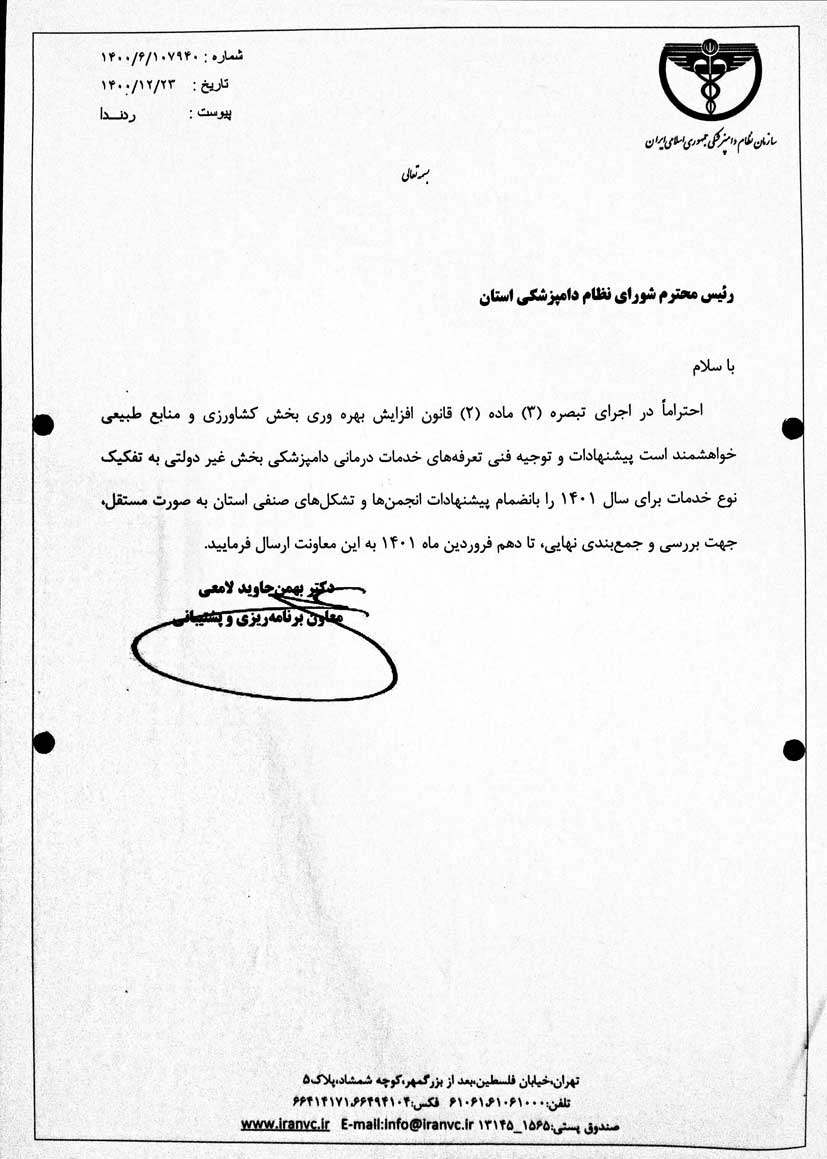 شماره : ۱۴۰۰/۶/۱۰۷۹۴۰
تاریخ : ۱۴۰۰/۱۲/۲۳
پیوست : ردنــدا
سازمان نظام دامپزشکی جمهوری اسلامی ایران
بسمه تعالی
رئیس محترم شورای نظام دامپزشکی استان
با سلام
احتراماً در اجرای تبصره (۳) ماده (۲) قانون افزایش بهره وری بخش کشاورزی و منابع طبیعی
خواهشمند است پیشنهادات و توجیه فنی تعرفه‌های خدمات درمانی دامپزشکی بخش غیر دولتی به تفکیک
نوع خدمات برای سال ۱۴۰۱ را بانضمام پیشنهادات انجمن‌ها و تشکل‌های صنفی استان به صورت مستقل،
جهت بررسی و جمع‌بندی نهایی، تا دهم فروردین ماه ۱۴۰۱ به این معاونت ارسال فرمایید.
دکتر بهمن جاوید لامعی
معاون برنامه‌ریزی و پشتیبانی
تهران،خیابان فلسطین،بعد از بزرگمهر،کوچه شمشاد،پلاک۵
تلفن:۶۱۰۶۱،۶۱۰۶۱۰۰۰ فکس:۶۶۴۱۴۱۷۱،۶۶۴۹۴۱۰۴
صندوق پستی:۱۵۶۵_۱۳۱۴۵ E-mail:info@iranvc.ir www.iranvc.ir